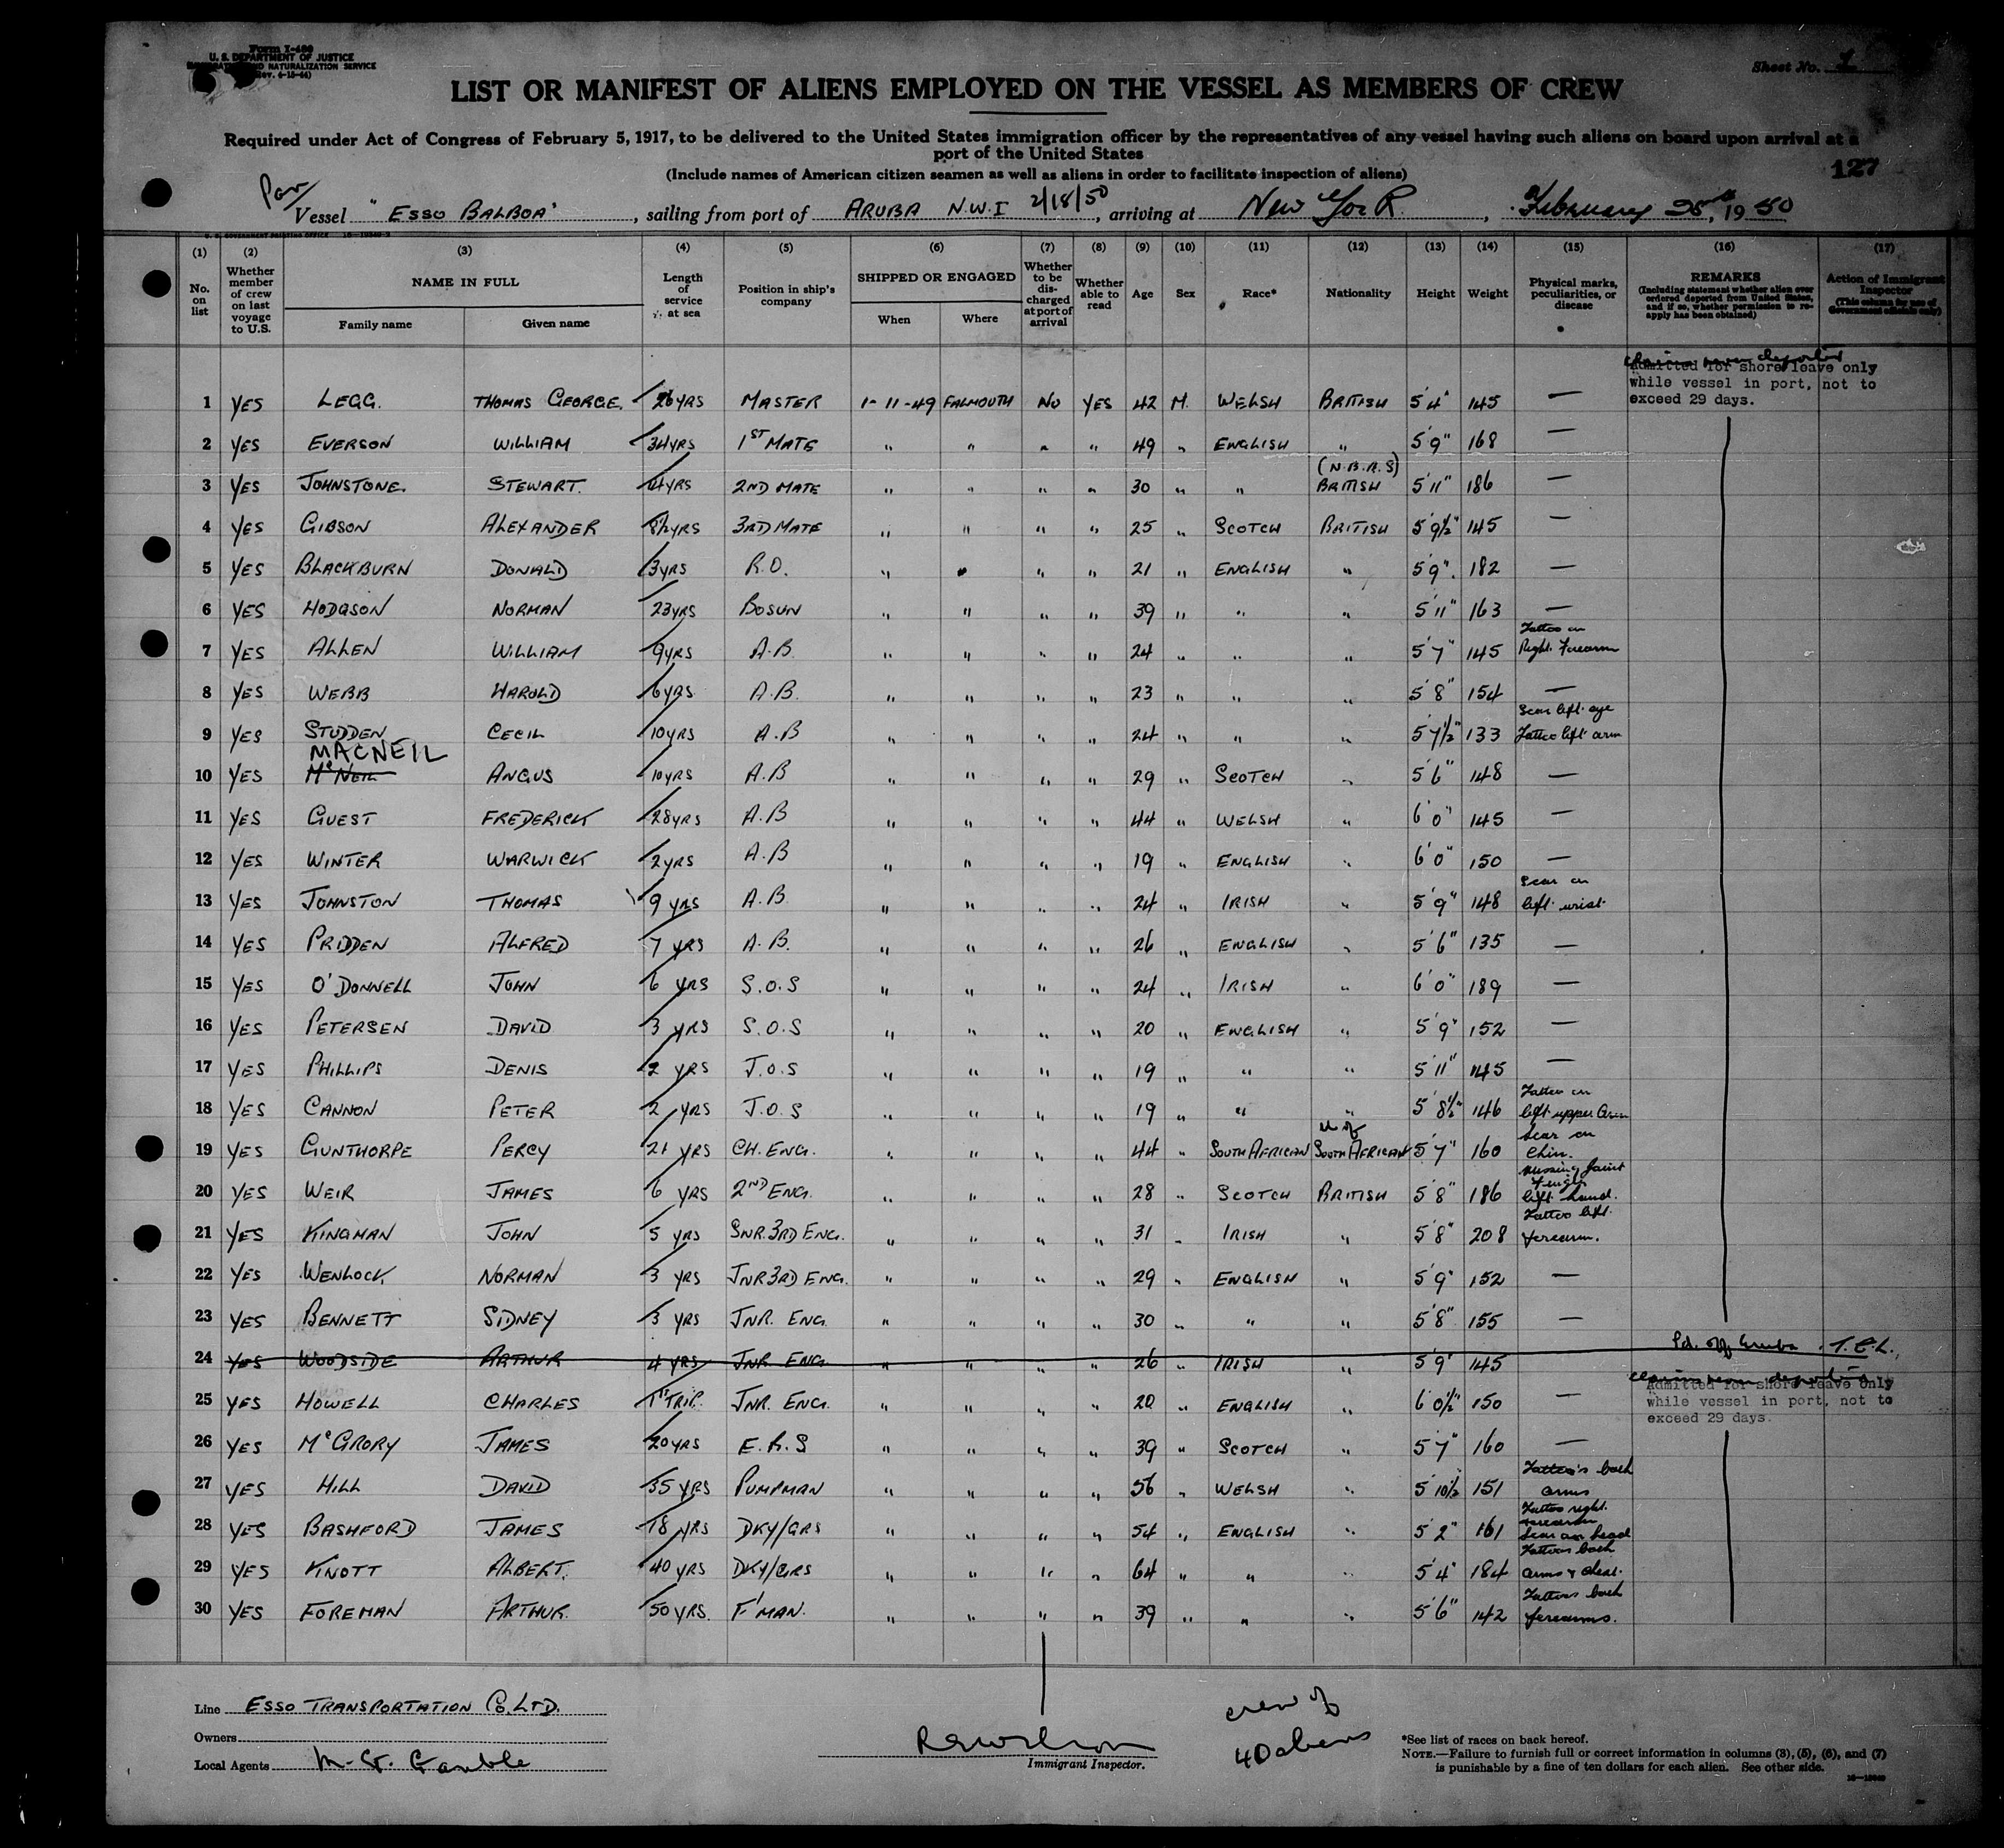 Form I-480
U. S. DEPARTMENT OF JUSTICE
IMMIGRATION AND NATURALIZATION SERVICE
(Rev. 4-15-44)
Sheet No. 1
LIST OR MANIFEST OF ALIENS EMPLOYED ON THE VESSEL AS MEMBERS OF CREW
Required under Act of Congress of February 5, 1917, to be delivered to the United States immigration officer by the representatives of any vessel having such aliens on board upon arrival at a
port of the United States
127
(Include names of American citizen seamen as well as aliens in order to facilitate inspection of aliens)
Vessel "ESSO BALBOA", sailing from port of ARUBA N.W.I 2/18/50, arriving at New York, February 25th, 1950
(1) (2) (3) (4) (5) (6) (7) (8) (9) (10) (11) (12) (13) (14) (15) (16) (17)
No. on list
Whether member of crew on last voyage to U.S.
NAME IN FULL
Family name
Given name
Length of service at sea
Position in ship's company
SHIPPED OR ENGAGED
When
Where
Whether to be discharged at port of arrival
Whether able to read
Age
Sex
Race*
Nationality
Height
Weight
Physical marks, peculiarities, or disease
REMARKS
(Including statement whether alien ever ordered deported from United States, and if so, whether permission to reapply has been obtained)
Action of Immigrant Inspector
(This column for use of Government officials only)
Admitted for shore leave only
while vessel in port, not to
exceed 29 days.
1 YES LEGG. THOMAS GEORGE. 26 YRS MASTER 1-11-49 FALMOUTH NO YES 42 M. WELSH BRITISH 5'4" 145 —
2 YES EVERSON WILLIAM 34 YRS 1ST MATE " " " " 49 " ENGLISH " 5'9" 168 —
(N.B.R.S)
3 YES JOHNSTONE. STEWART. 4 YRS 2ND MATE " " " " 30 " " BRITISH 5'11" 186 —
4 YES GIBSON ALEXANDER 8½ YRS 3RD MATE " " " " 25 " SCOTCH BRITISH 5'9½" 145 —
5 YES BLACKBURN DONALD 3 YRS R.O. " " " " 21 " ENGLISH " 5'9". 182 —
6 YES HODGSON NORMAN 23 YRS BOSUN " " " " 39 " " " 5'11" 163 —
7 YES ALLEN WILLIAM 9 YRS A.B. " " " " 24 " " " 5'7" 145 Tattoo on Right Forearm
8 YES WEBB HAROLD 6 YRS A.B. " " " " 23 " " " 5'8" 154 —
9 YES STUDDEN CECIL 10 YRS A.B " " " " 24 " " " 5'7½" 133 Scar left eye Tattoo left arm
MACNEIL
10 YES McNEIL ANGUS 10 YRS A.B " " " " 29 " SCOTCH " 5'6" 148 —
11 YES GUEST FREDERICK 28 YRS A.B " " " " 44 " WELSH " 6'0" 145 —
12 YES WINTER WARWICK 2 YRS A.B " " " " 19 " ENGLISH " 6'0" 150 —
13 YES JOHNSTON THOMAS 9 YRS A.B. " " " " 24 " IRISH " 5'9" 148 Scar on left wrist
14 YES PRIDDEN ALFRED 7 YRS A.B. " " " " 26 " ENGLISH " 5'6" 135 —
15 YES O'DONNELL JOHN 6 YRS S.O.S " " " " 24 " IRISH " 6'0" 189 —
16 YES PETERSEN DAVID 3 YRS S.O.S " " " " 20 " ENGLISH " 5'9" 152 —
17 YES PHILLIPS DENIS 2 YRS J.O.S " " " " 19 " " " 5'11" 145 —
18 YES CANNON PETER 2 YRS J.O.S " " " " 19 " " " 5'8½" 146 Tattoo on left upper Arm
U of
19 YES GUNTHORPE PERCY 21 YRS CH. ENG. " " " " 44 " SOUTH AFRICAN SOUTH AFRICAN 5'7" 160 Scar on Chin.
20 YES WEIR JAMES 6 YRS 2ND ENG. " " " " 28 " SCOTCH BRITISH 5'8" 186 missing joint finger left hand.
21 YES KINGMAN JOHN 5 YRS SNR. 3RD ENG. " " " " 31 " IRISH " 5'8" 208 Tattoo left forearm.
22 YES WENLOCK NORMAN 3 YRS JNR 3RD ENG. " " " " 29 " ENGLISH " 5'9" 152 —
23 YES BENNETT SIDNEY 3 YRS JNR. ENG. " " " " 30 " " " 5'8" 155 —
24 YES WOODSIDE ARTHUR 4 YRS JNR ENG " " " " 26 " IRISH " 5'9" 145 Pd. off Aruba. T.E.L.
Admitted for shore leave only
while vessel in port, not to
exceed 29 days.
25 YES HOWELL CHARLES 1ST TRIP. JNR. ENG. " " " " 20 " ENGLISH " 6'0½" 150 —
26 YES McGRORY JAMES 20 YRS E.R.S " " " " 39 " SCOTCH " 5'7" 160 —
27 YES HILL DAVID 35 YRS PUMPMAN " " " " 56 " WELSH " 5'10½ 151 Tattoo's both arms
28 YES BASHFORD JAMES 18 YRS DKY/GRS " " " " 54 " ENGLISH " 5'2" 161 Tattoo right forearm Scar on head
29 YES KNOTT ALBERT. 40 YRS DKY/GRS " " " " 64 " " " 5'4" 184 Tattoos both arms & chest.
30 YES FOREMAN ARTHUR. 50 YRS. F'MAN. " " " " 39 " " " 5'6" 142 Tattoos both forearms.
Line ESSO TRANSPORTATION CO. LTD.
Owners
Local Agents M. G. Gamble
Immigrant Inspector.
crew of
40 aliens
*See list of races on back hereof.
NOTE.—Failure to furnish full or correct information in columns (3), (5), (6), and (7)
is punishable by a fine of ten dollars for each alien. See other side.